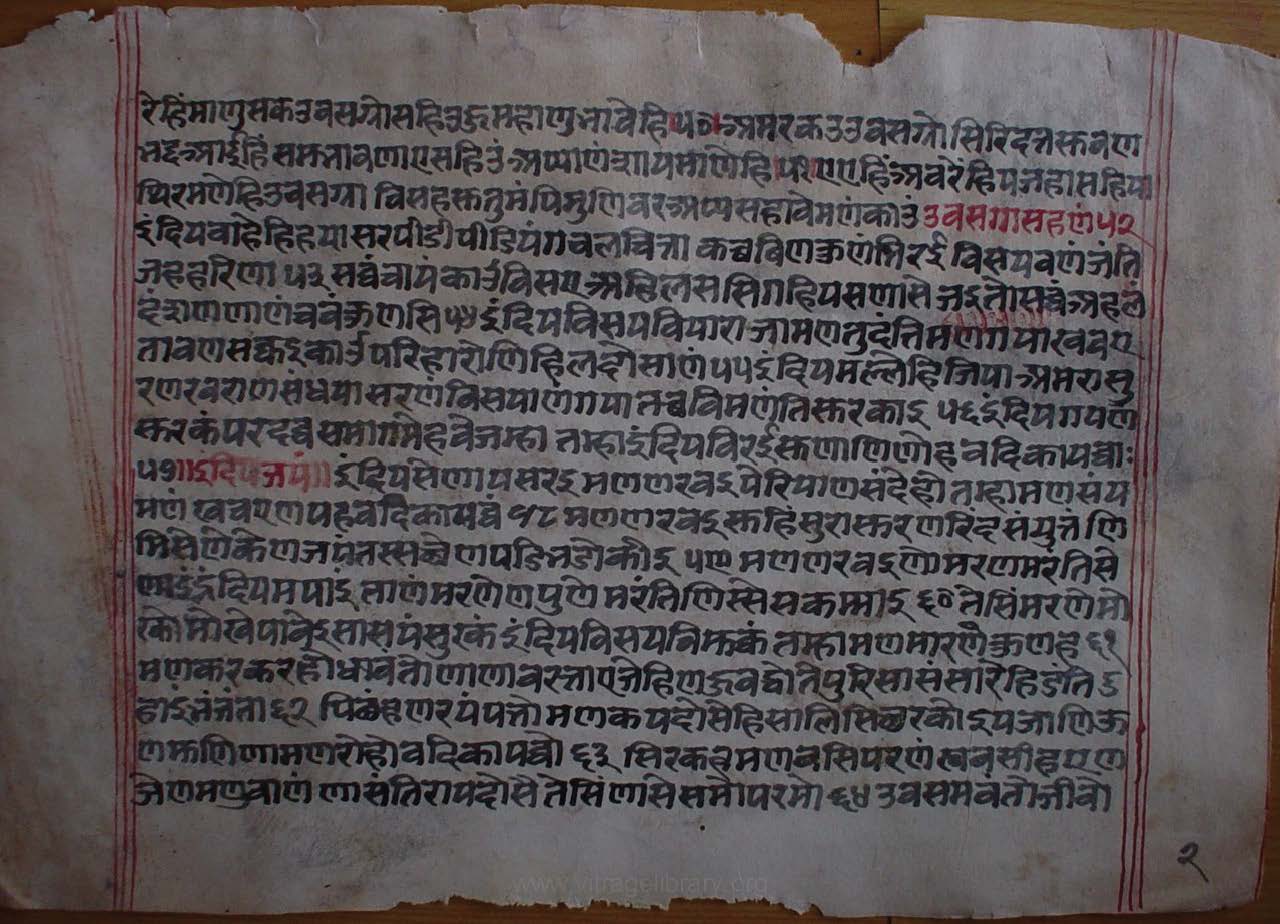 रेहिंमाणुसकउवसग्गोसहिउज्जमहाणुभावेहि५०अमरकउउवसग्गोसिरिदत्तसुवण
भद्दआईहिंसमभावणाएसहिउंअप्पाणंझायमाणेहि५१एएहिंअवरेहियजहासहिया
थिरमणेहिउवसग्गा विसहसुतुमंपिमुणिवरअप्पसहावेमणंकाउं उवसग्गासहणं५२
इंदियवाहेहिहयासरपीडापीडियंगचलचित्ता कच्छविणकुणंतिरई विसयवणंजंति
जहहरिणा ५३ सव्वंचायंकाउंविसएअहिलससिगहियसण्णासे जइतोसव्वंअहलं
दंसणणाणंचवंकुणसि५४इंदियविसयवियाराजामणतुट्टंतिमणगयाखवए
तावणसक्कइकाउंपरिहारोणिहिलदोसाणं५५इंदियमल्लेहिजियाअमरासु
रणरवराणसंघयासरणंविसयाणंगयातच्छविमणंतिसुरकाइ ५६इंदियगयणं
सुरकंपरदव्वेसमागमेहवेजम्हा तम्हाइंदियविरईसुणाणिणोहवदिकायव्वाः
५७॥इंदियजयं॥ इंदियसेणायसरइ मणणरवइपेरियाणसंदेहो ताम्हामणसंय
मणं खवएणपहवदिकायव्वं ५८ मणणरवइसुहिंसुरासुरणरिंदसंयुत्तंणि
मिसेणेकेणजगंतस्सच्छेणपडिभडोकोइ ५९ मणणरवइणोमरणेमरंतिसे
णाइंइंदियमयाइ ताणंमरणेणपुणे मरंतिणिस्सेसकम्माइ ६० तेसिंमरणेमो
रकोमोखेपावेइसासयंसुरकं इंदियविसयविमुकं तम्हामणमारणंकुणह ६१
मणकरकरहोधावंतोणाणावरत्ताएजेहिणहुबद्धोतेपुरिसासंसारेहिंडंति ड
हाइंभंजंता६२ पिछंहणरयंपत्तोमणकयदोसेहिसालिसिछरको इयजाणिऊ
णमुणिणामणरोहोवदिकायव्वो ६३ सिरकहमणवसियरणं खवसीहूएण
जेणमणुवाणं णासंतिरायदोसे तेसिंणासेसमोपरमो ६४ उवसमवंतोजीवो
२
www.vitragelibrary.org